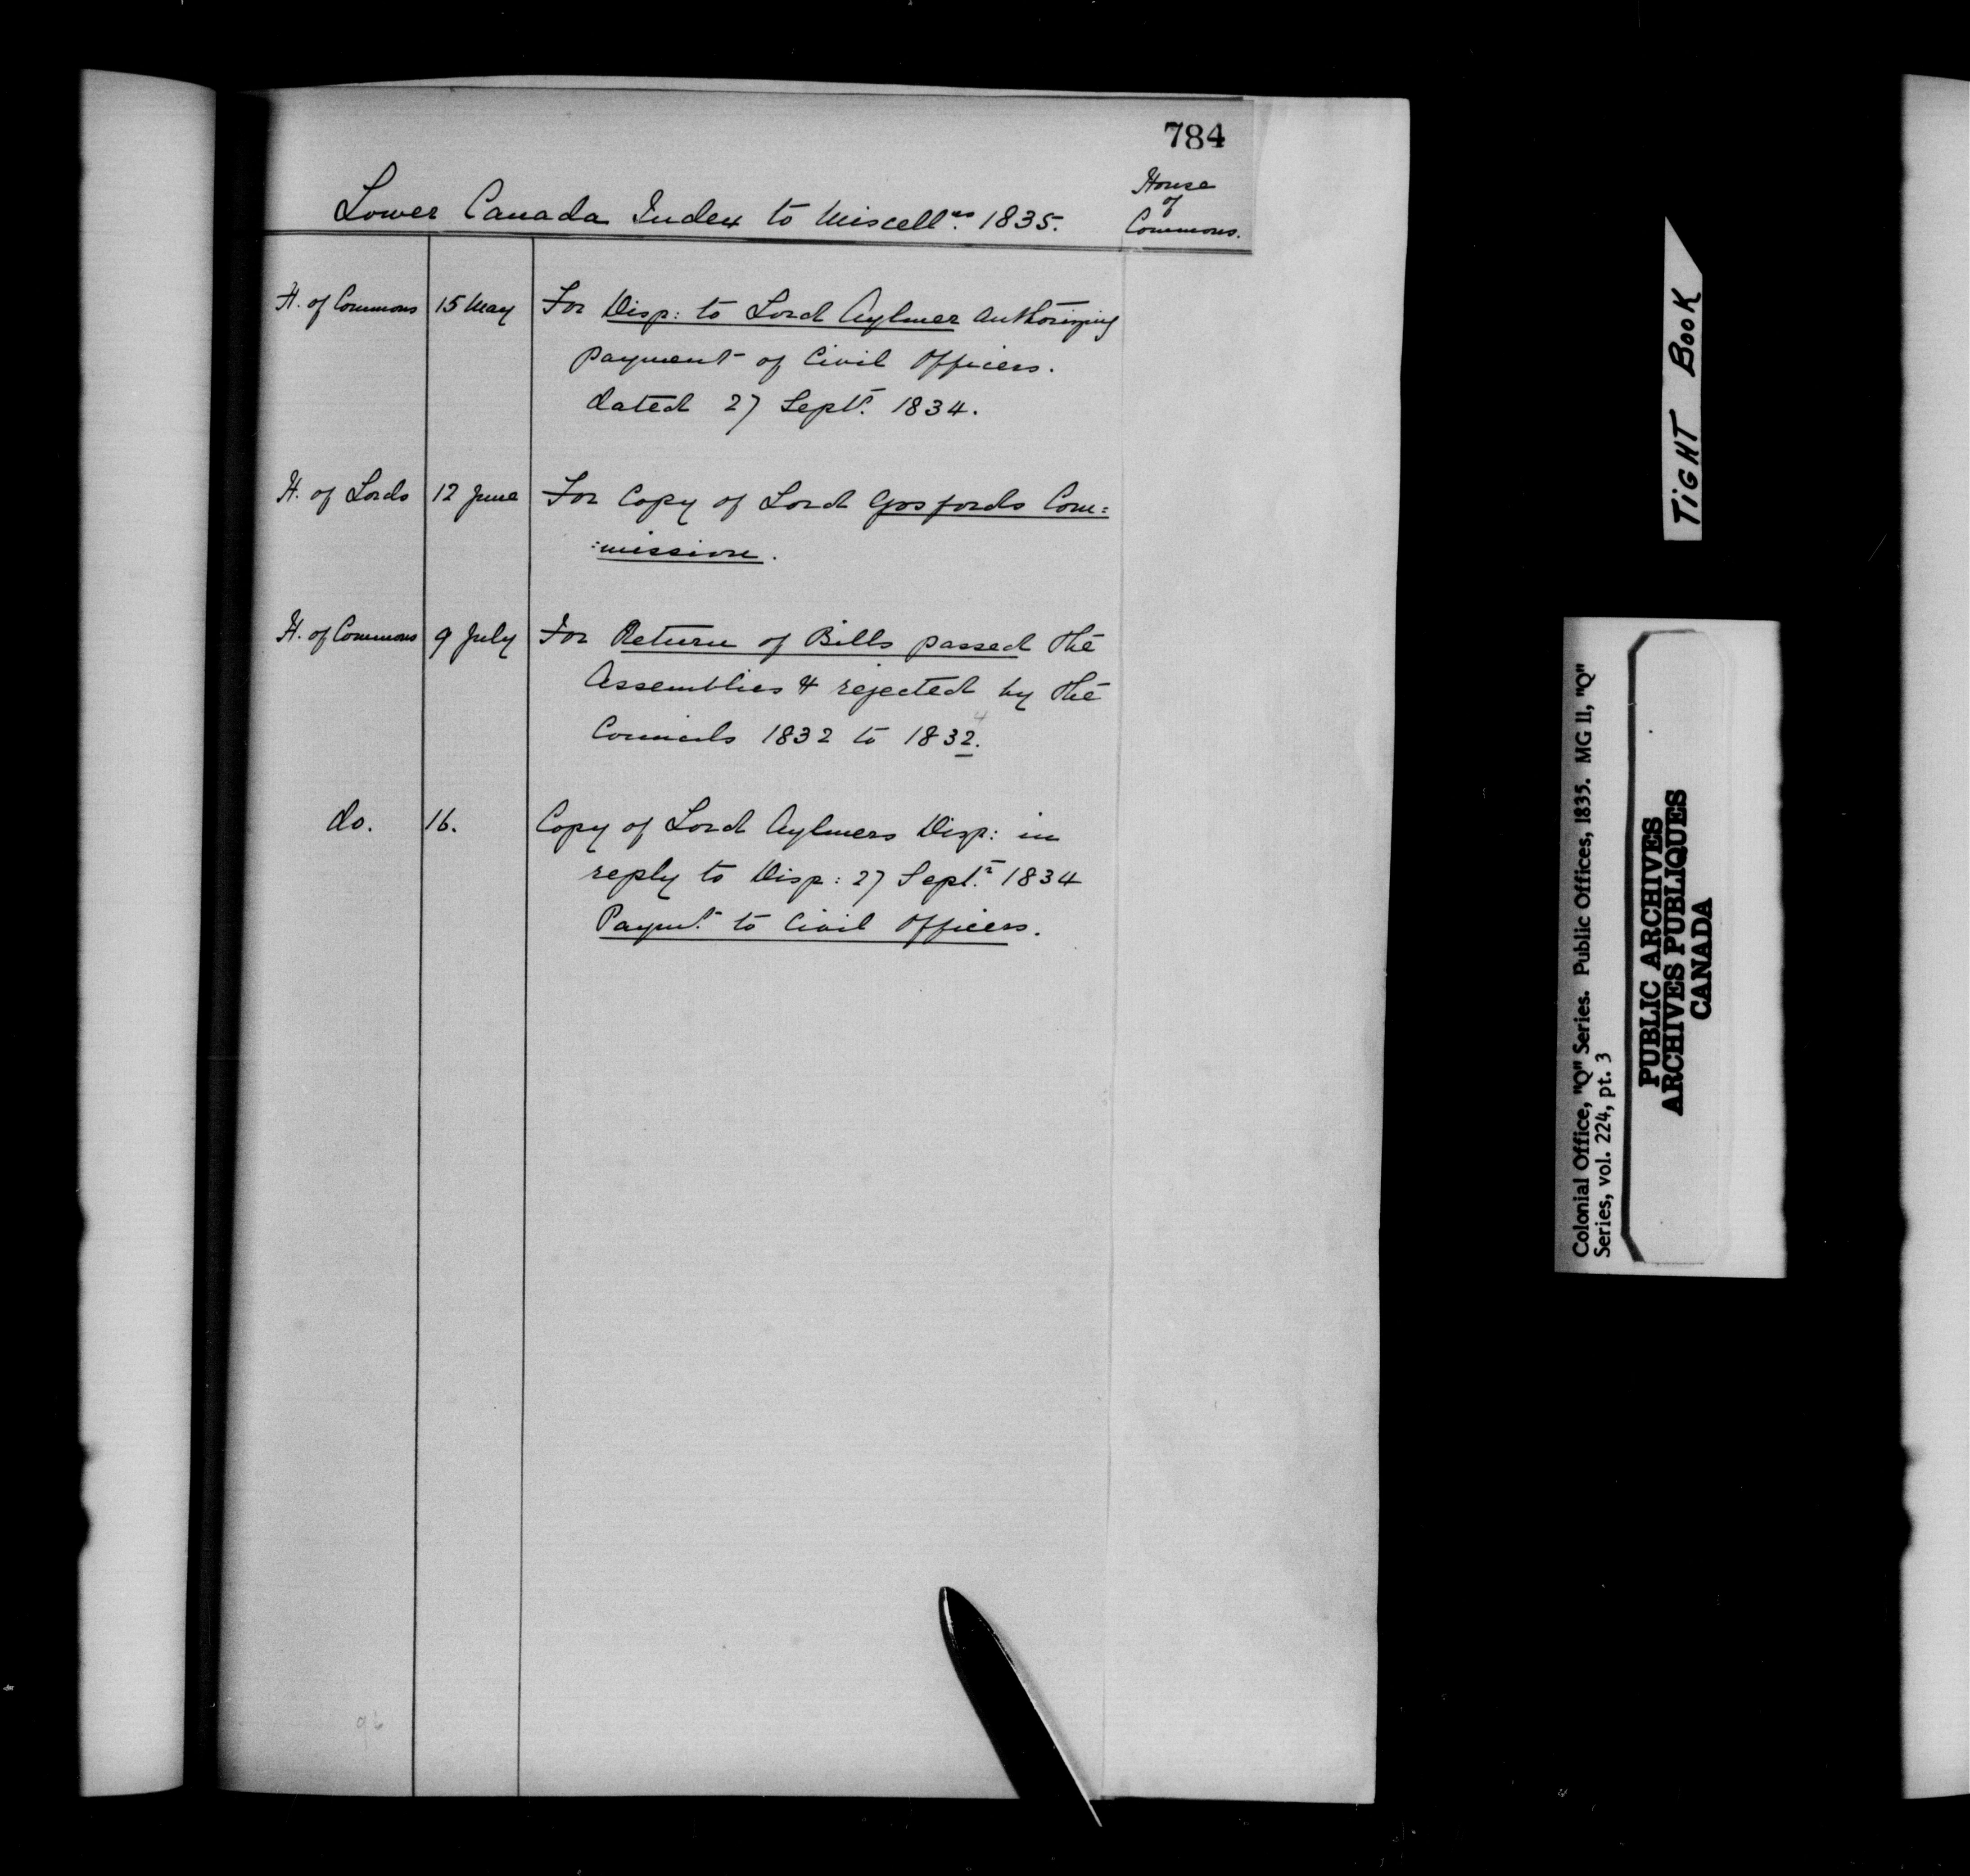 784
House
of
Commons.
Lower Canada Index to Miscell.us 1835.
H. of Commons 15 May For Disp: to Lord Aylmer authorizing
payment of Civil Officers.
dated 27 Septr. 1834.
H. of Lords 12 June For Copy of Lord Gosfords Com:
:mission.
H. of Commons 9 July For Return of Bills passed the
Assemblies & rejected by the
4
Councils 1832 to 1832.
do. 16. Copy of Lord Aylmers Disp: in
reply to Disp: 27 Sept.r 1834
Paymt. to Civil Officers.
96
TIGHT BOOK
Colonial Office, "Q" Series. Public Offices, 1835. MG 11, "Q"
Series, vol. 224, pt. 3
PUBLIC ARCHIVES
ARCHIVES PUBLIQUES
CANADA